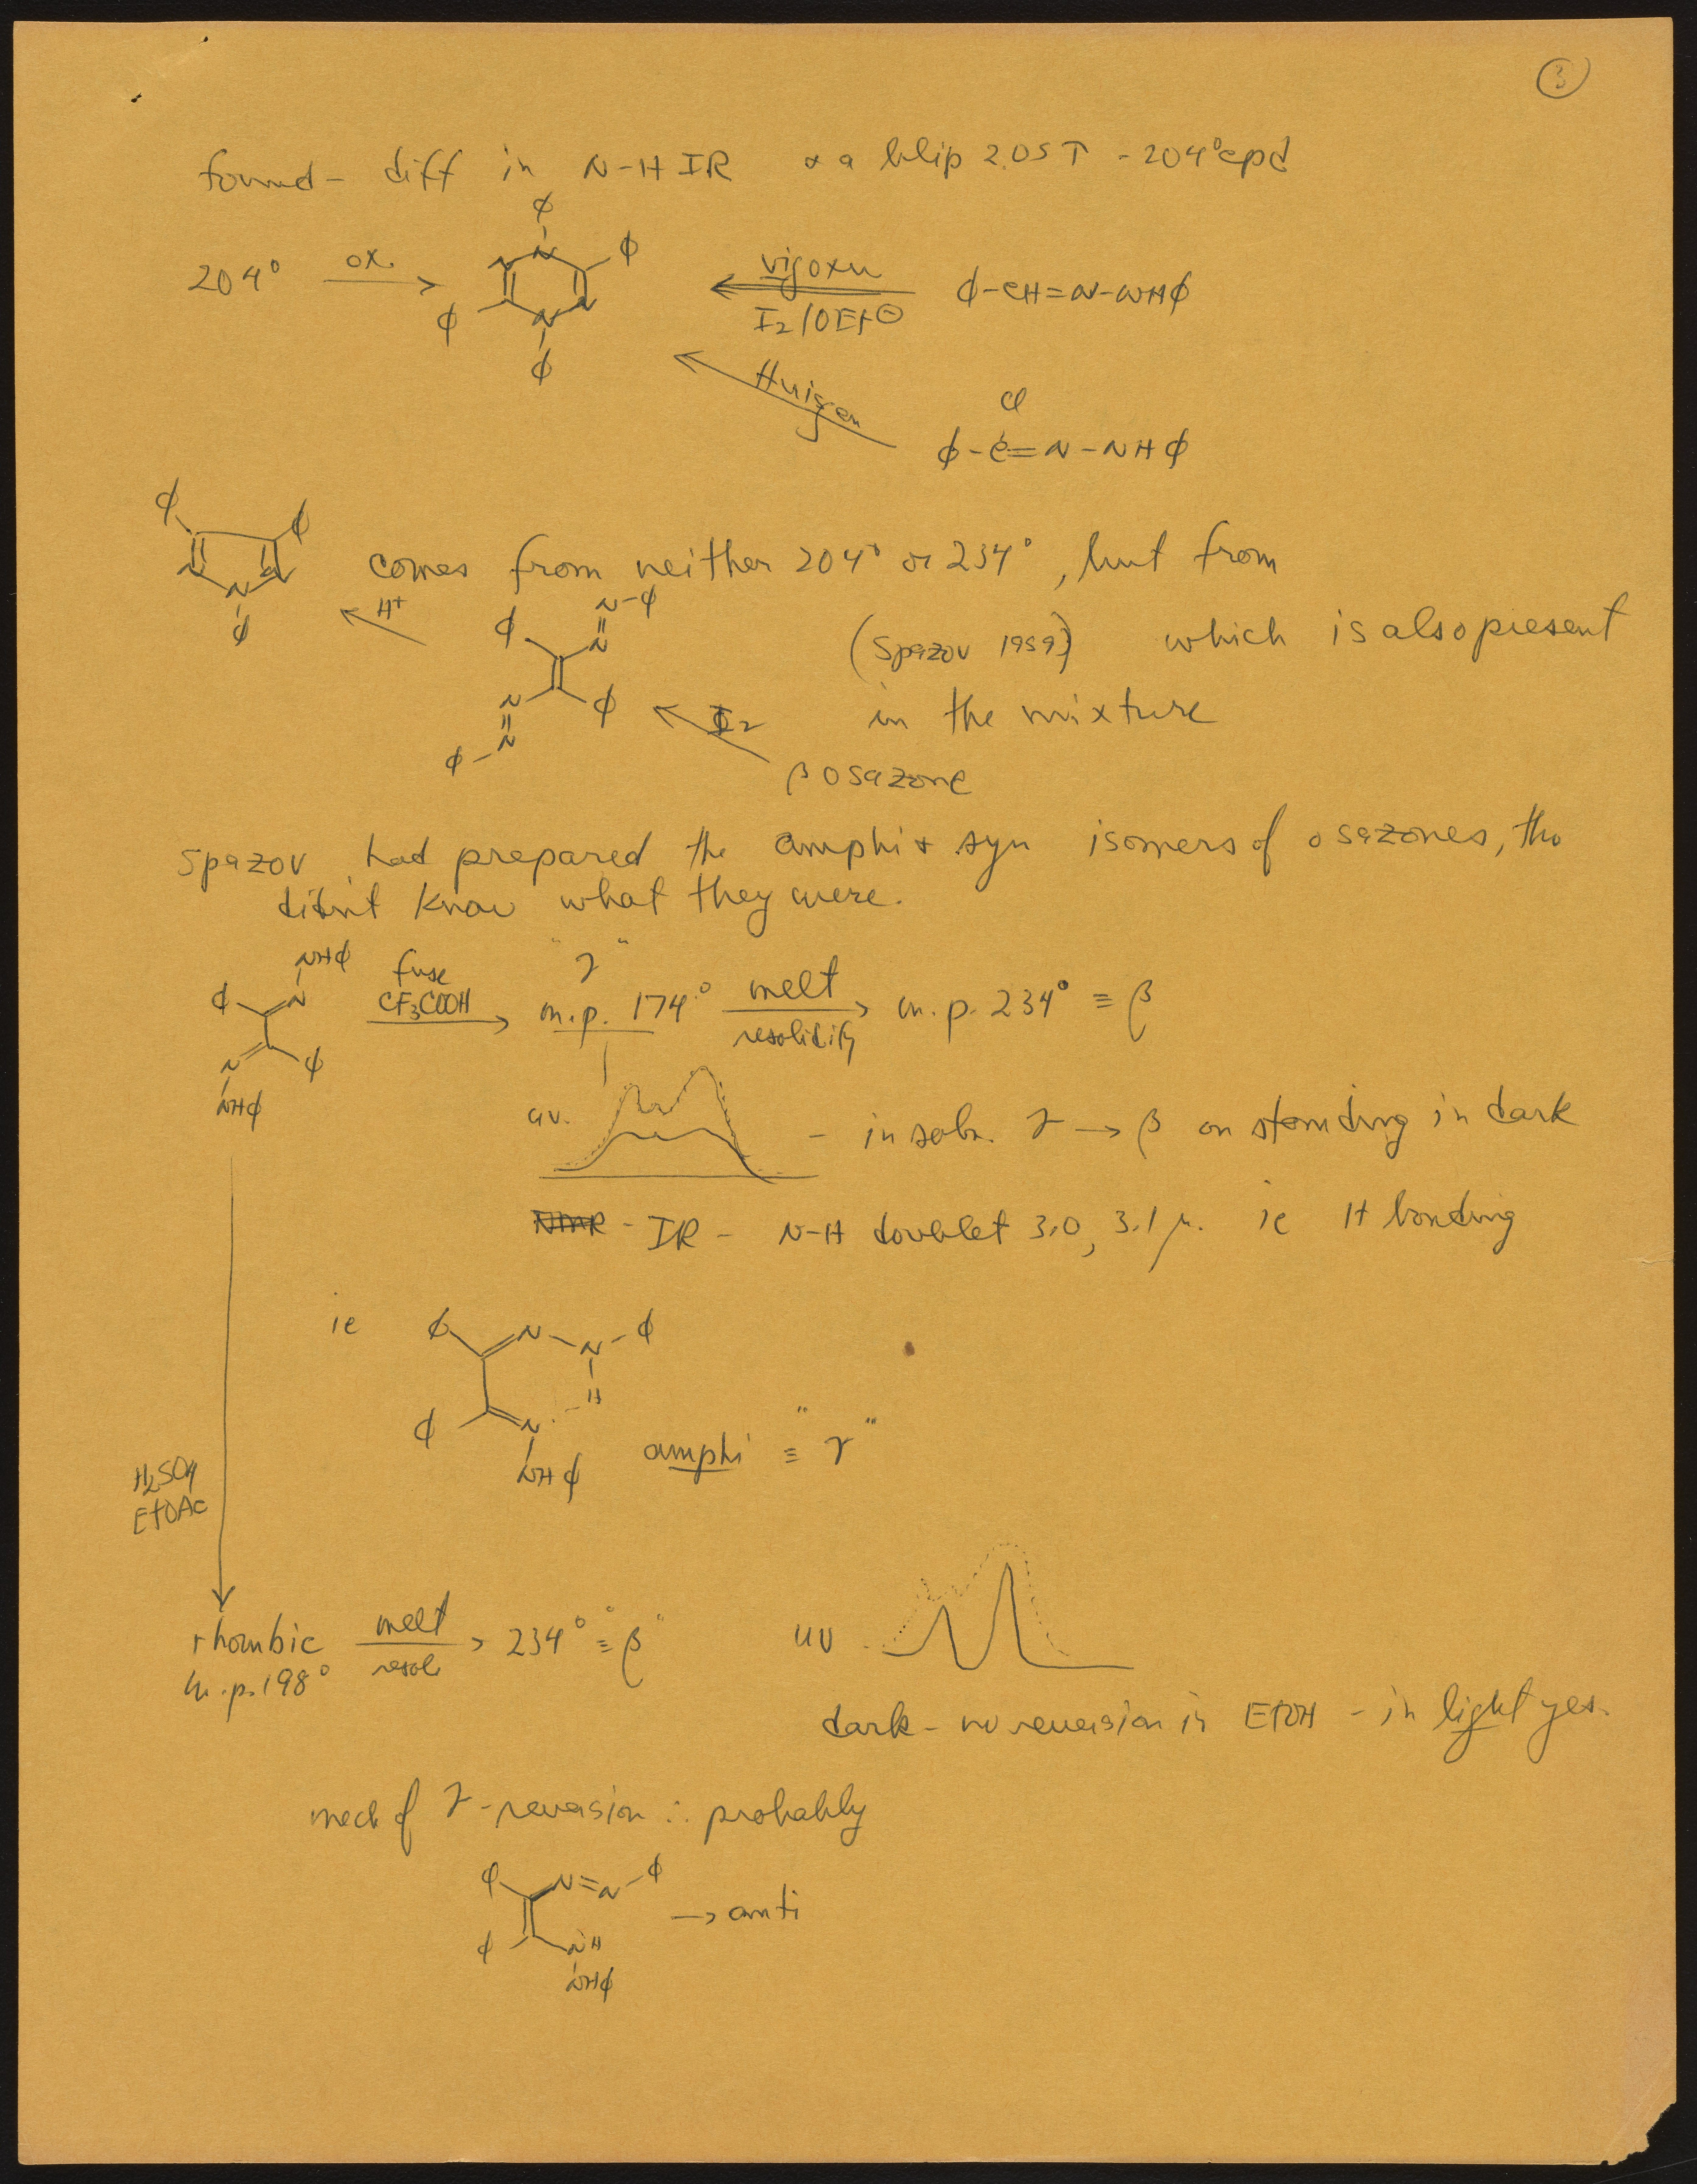 3
found - diff in N-H IR & a blip 2.05 T - 204° cpd
204° ox. → φ N N φ N N φ φ ← vigoxn I2/OEt⊖ φ-CH=N-NHφ
Huisgen
Cl
φ-C=N-NHφ
φ φ N N N φ
comes from neither 204° or 234°, but from
H+ φ N-φ N φ N N φ
(Spazov 1959) which is also present
I2 in the mixture
β osazone
Spazov had prepared the amphi & syn isomers of osazones, tho
didn't know what they were.
NHφ φ N N φ NHφ
fuse CF3COOH → "γ" m.p. 174° melt resolidify → m.p. 234° ≡ β
uv. - in soln. γ → β on standing in dark
NMR - IR - N-H doublet 3.0, 3.1 μ. ie H bonding
ie φ N-N-φ H φ N NHφ
amphi ≡ "γ"
H2SO4
EtOAc
rhombic melt resol. → 234° ≡ "β"
m.p. 198°
uv
dark - no reversion in EtOH - in light yes.
mech of γ-reversion ∴ probably
φ N=N-φ φ NH NHφ → anti